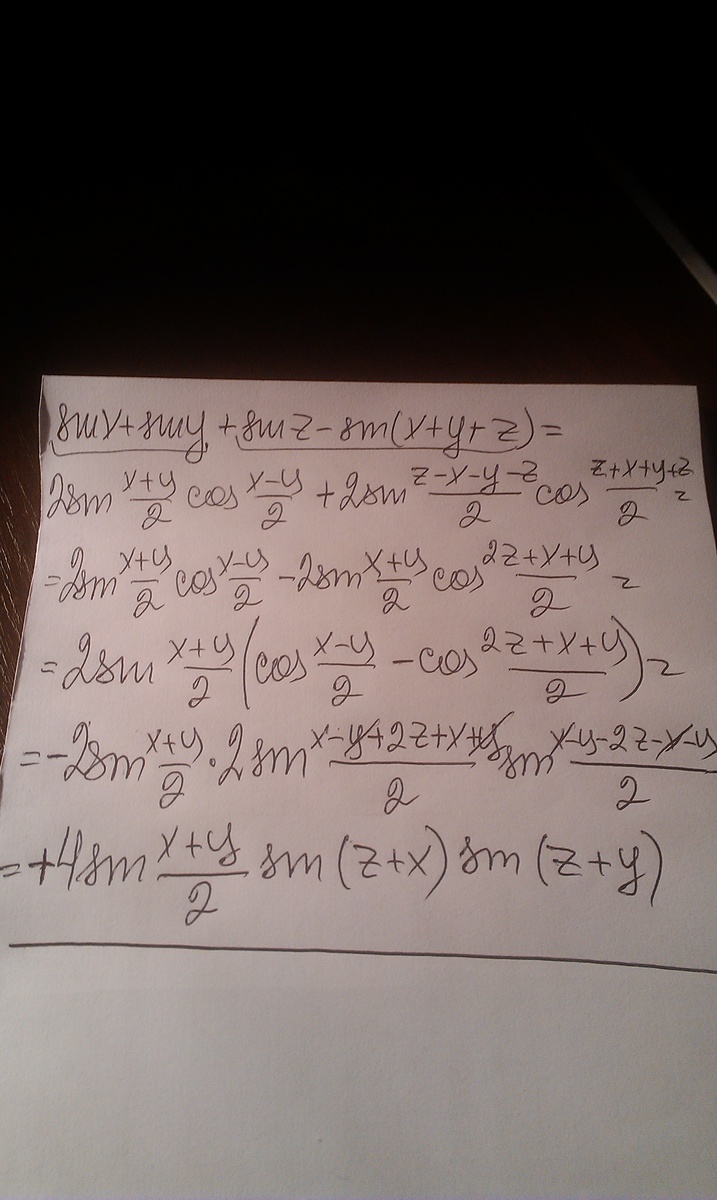 sinx+siny+sinz-sin(x+y+z)=
2sin (x+y)/2 cos (x-y)/2 + 2sin (z-x-y-z)/2 cos (z+x+y+z)/2 =
=2sin (x+y)/2 cos (x-y)/2 - 2sin (x+y)/2 cos (2z+x+y)/2 =
=2sin (x+y)/2 (cos (x-y)/2 - cos (2z+x+y)/2) =
=-2sin (x+y)/2 · 2sin (x-y+2z+x+y)/2 sin (x-y-2z-x-y)/2
=+4sin (x+y)/2 sin(z+x) sin(z+y)